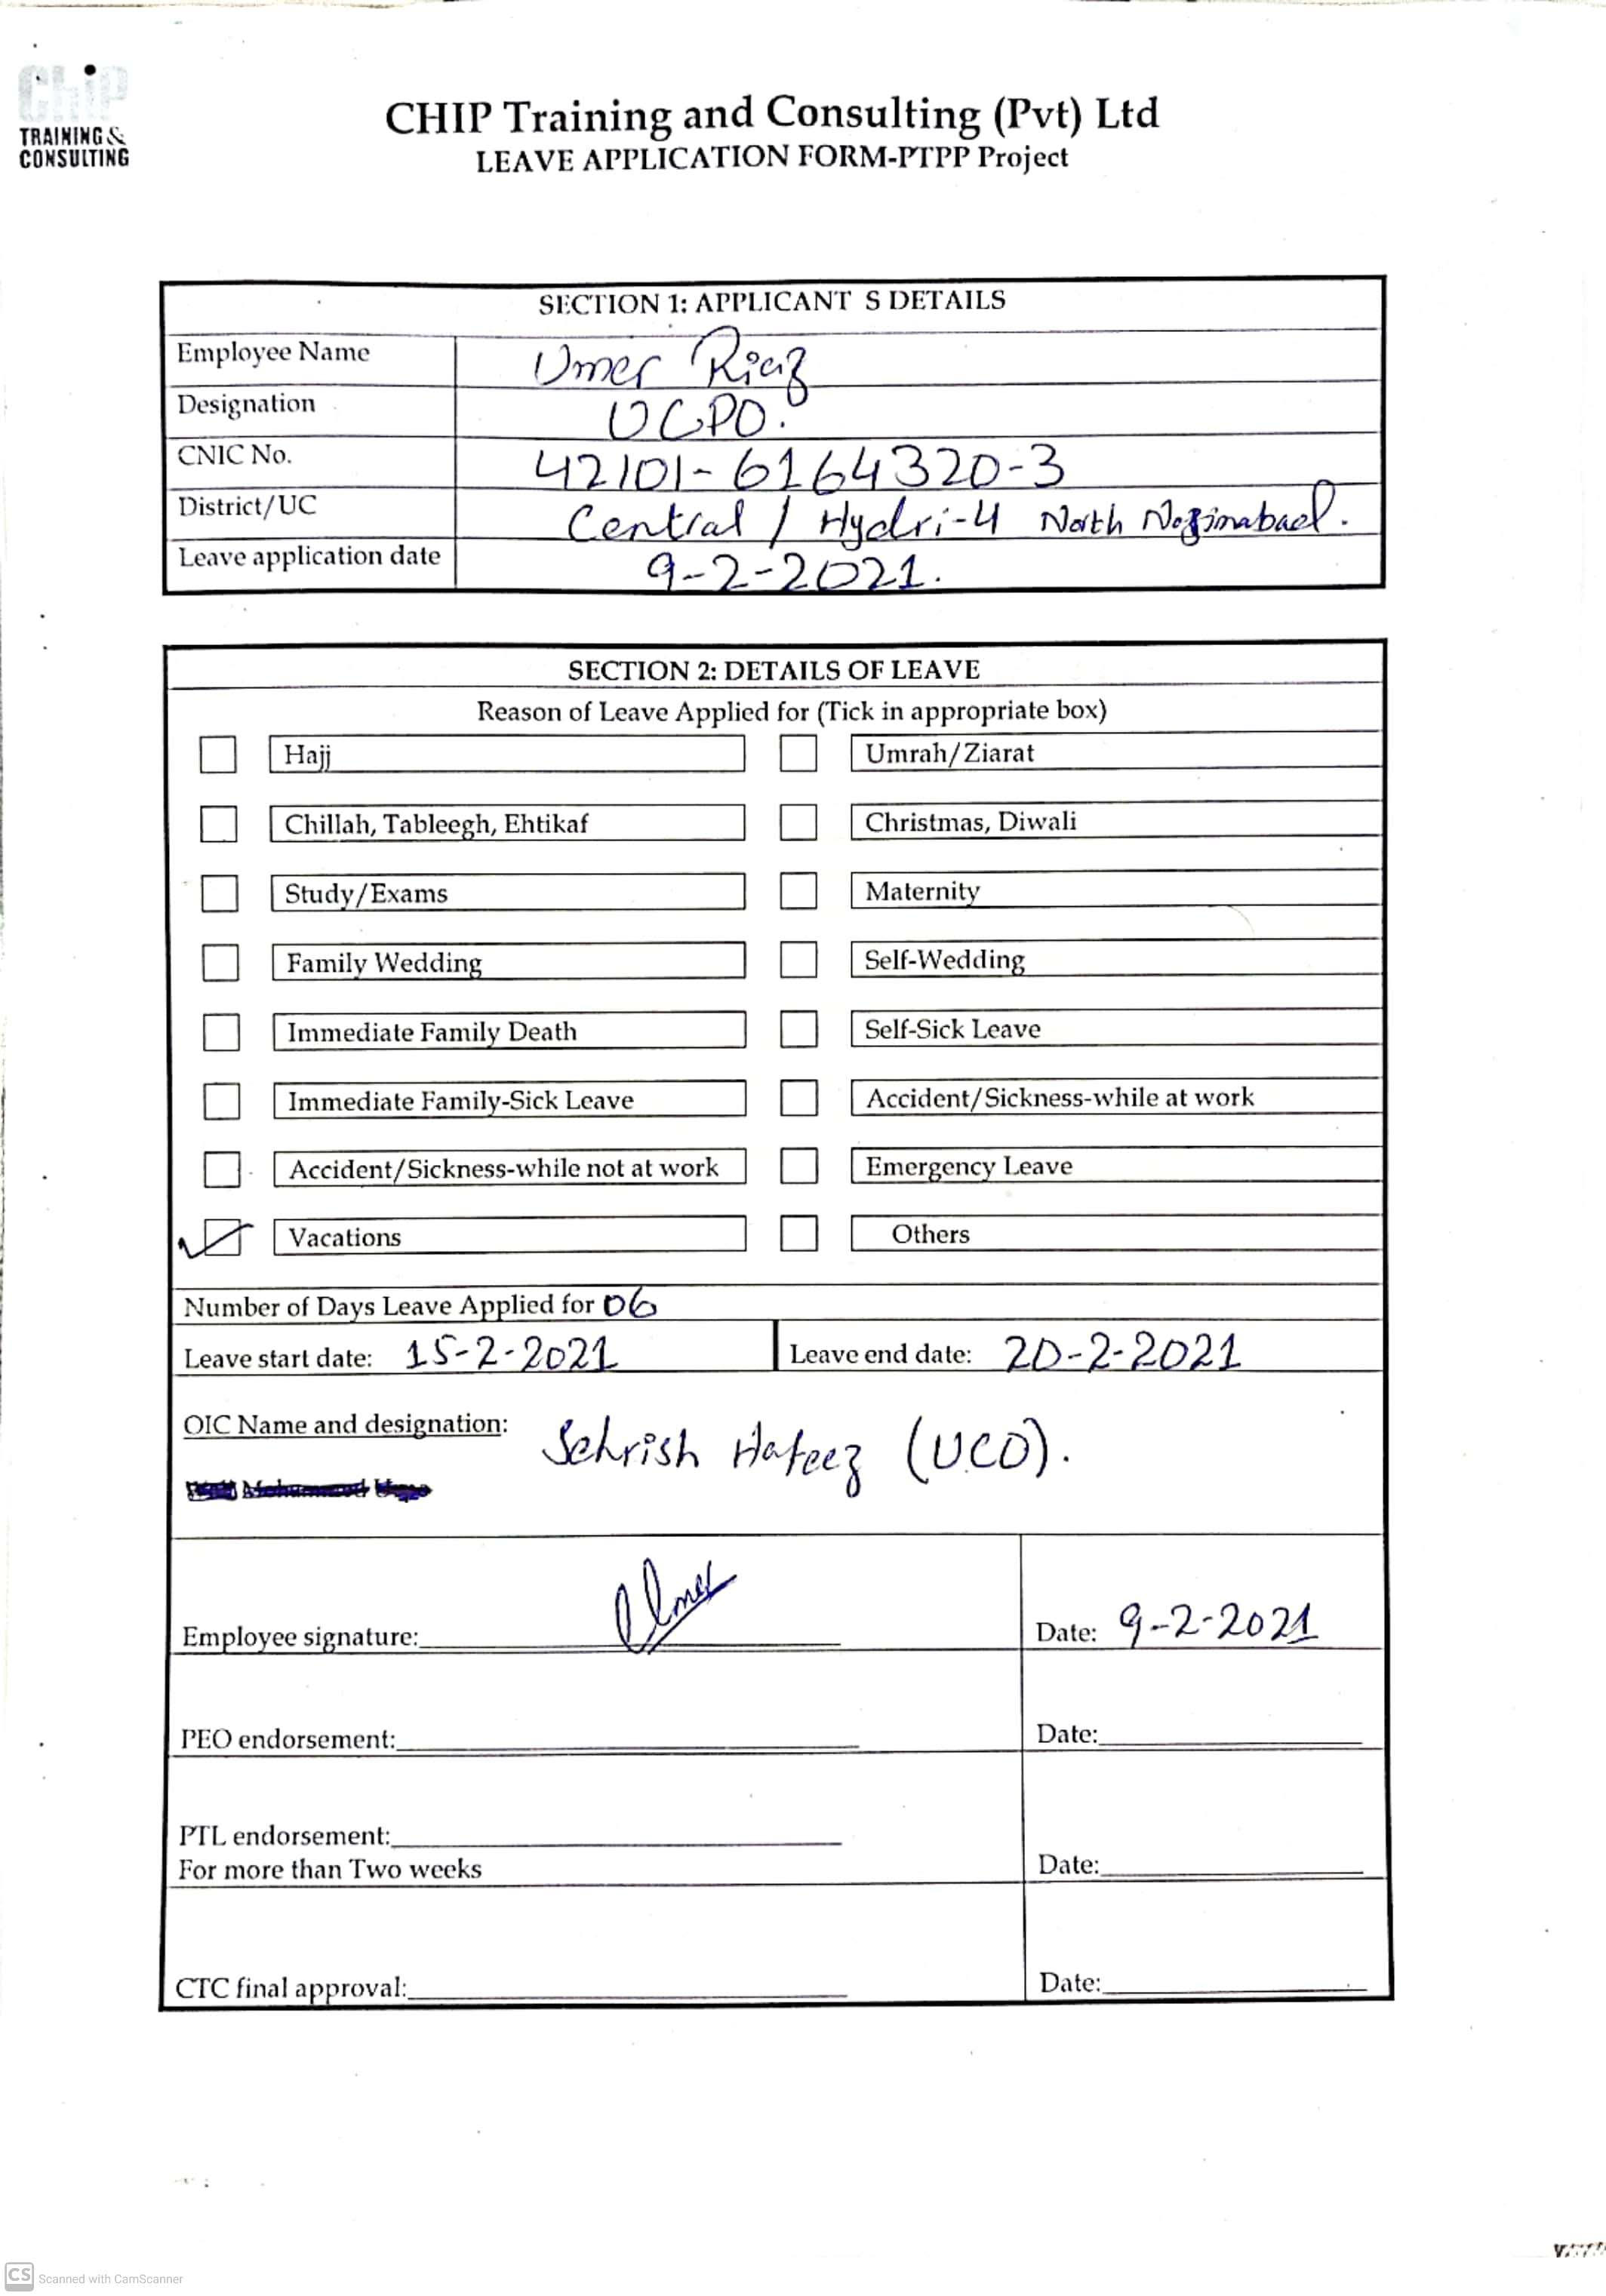 ChiP
TRAINING &
CONSULTING
CHIP Training and Consulting (Pvt) Ltd
LEAVE APPLICATION FORM-PTPP Project
SECTION 1: APPLICANT S DETAILS
Employee Name Umer Riaz
Designation UCPO.
CNIC No. 42101-6164320-3
District/UC Central / Hydri-4 North Nazimabad.
Leave application date 9-2-2021.
SECTION 2: DETAILS OF LEAVE
Reason of Leave Applied for (Tick in appropriate box)
Hajj Umrah/Ziarat
Chillah, Tableegh, Ehtikaf Christmas, Diwali
Study/Exams Maternity
Family Wedding Self-Wedding
Immediate Family Death Self-Sick Leave
Immediate Family-Sick Leave Accident/Sickness-while at work
Accident/Sickness-while not at work Emergency Leave
Vacations Others
Number of Days Leave Applied for 06
Leave start date: 15-2-2021 Leave end date: 20-2-2021
OIC Name and designation: Sehrish Hafeez (UCO).
Employee signature: Umer Date: 9-2-2021
PEO endorsement: Date:
PTL endorsement:
For more than Two weeks Date:
CTC final approval: Date:
CS Scanned with CamScanner